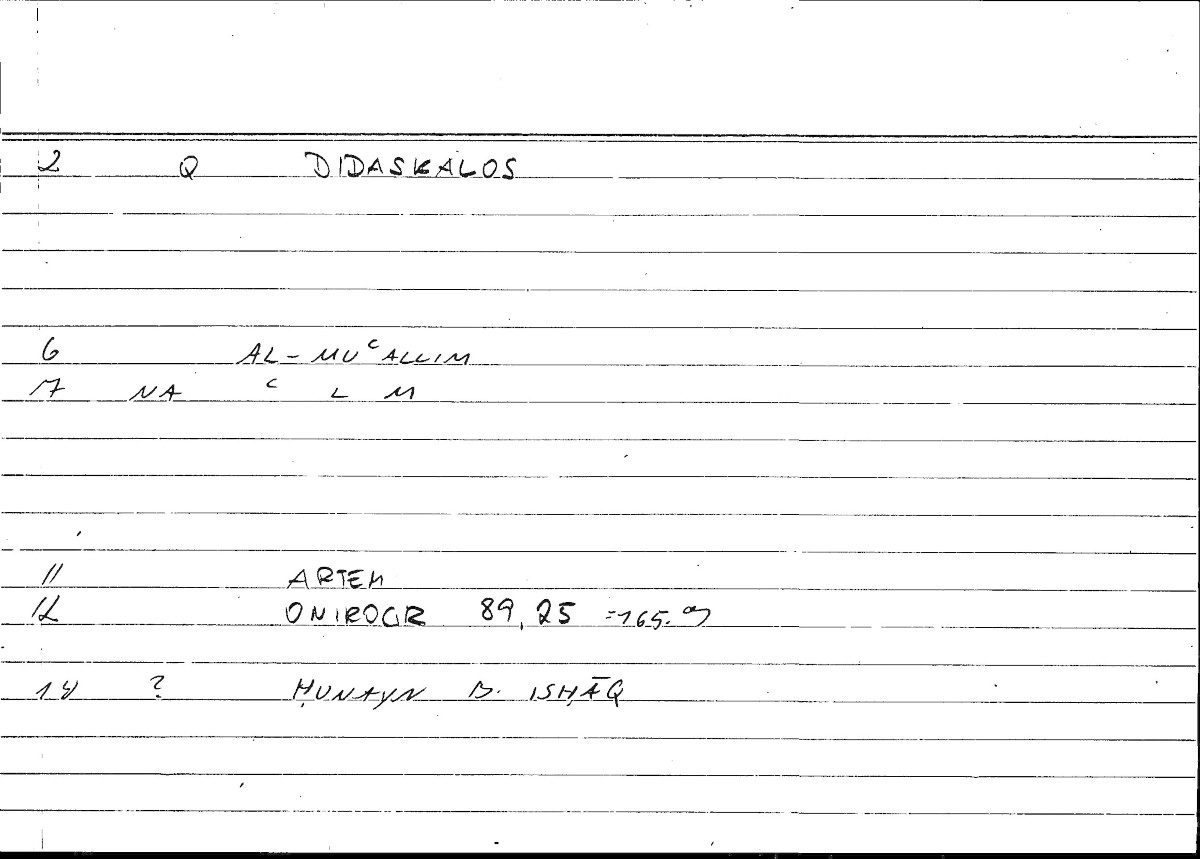 2 Q DIDASKALOS
6 AL-MUʿALLIM
7 NA ʿ L M
11 ARTEM
12 ONIROCR 89,25 =165.9
14 ? ḤUNAYN B. ISḤĀQ